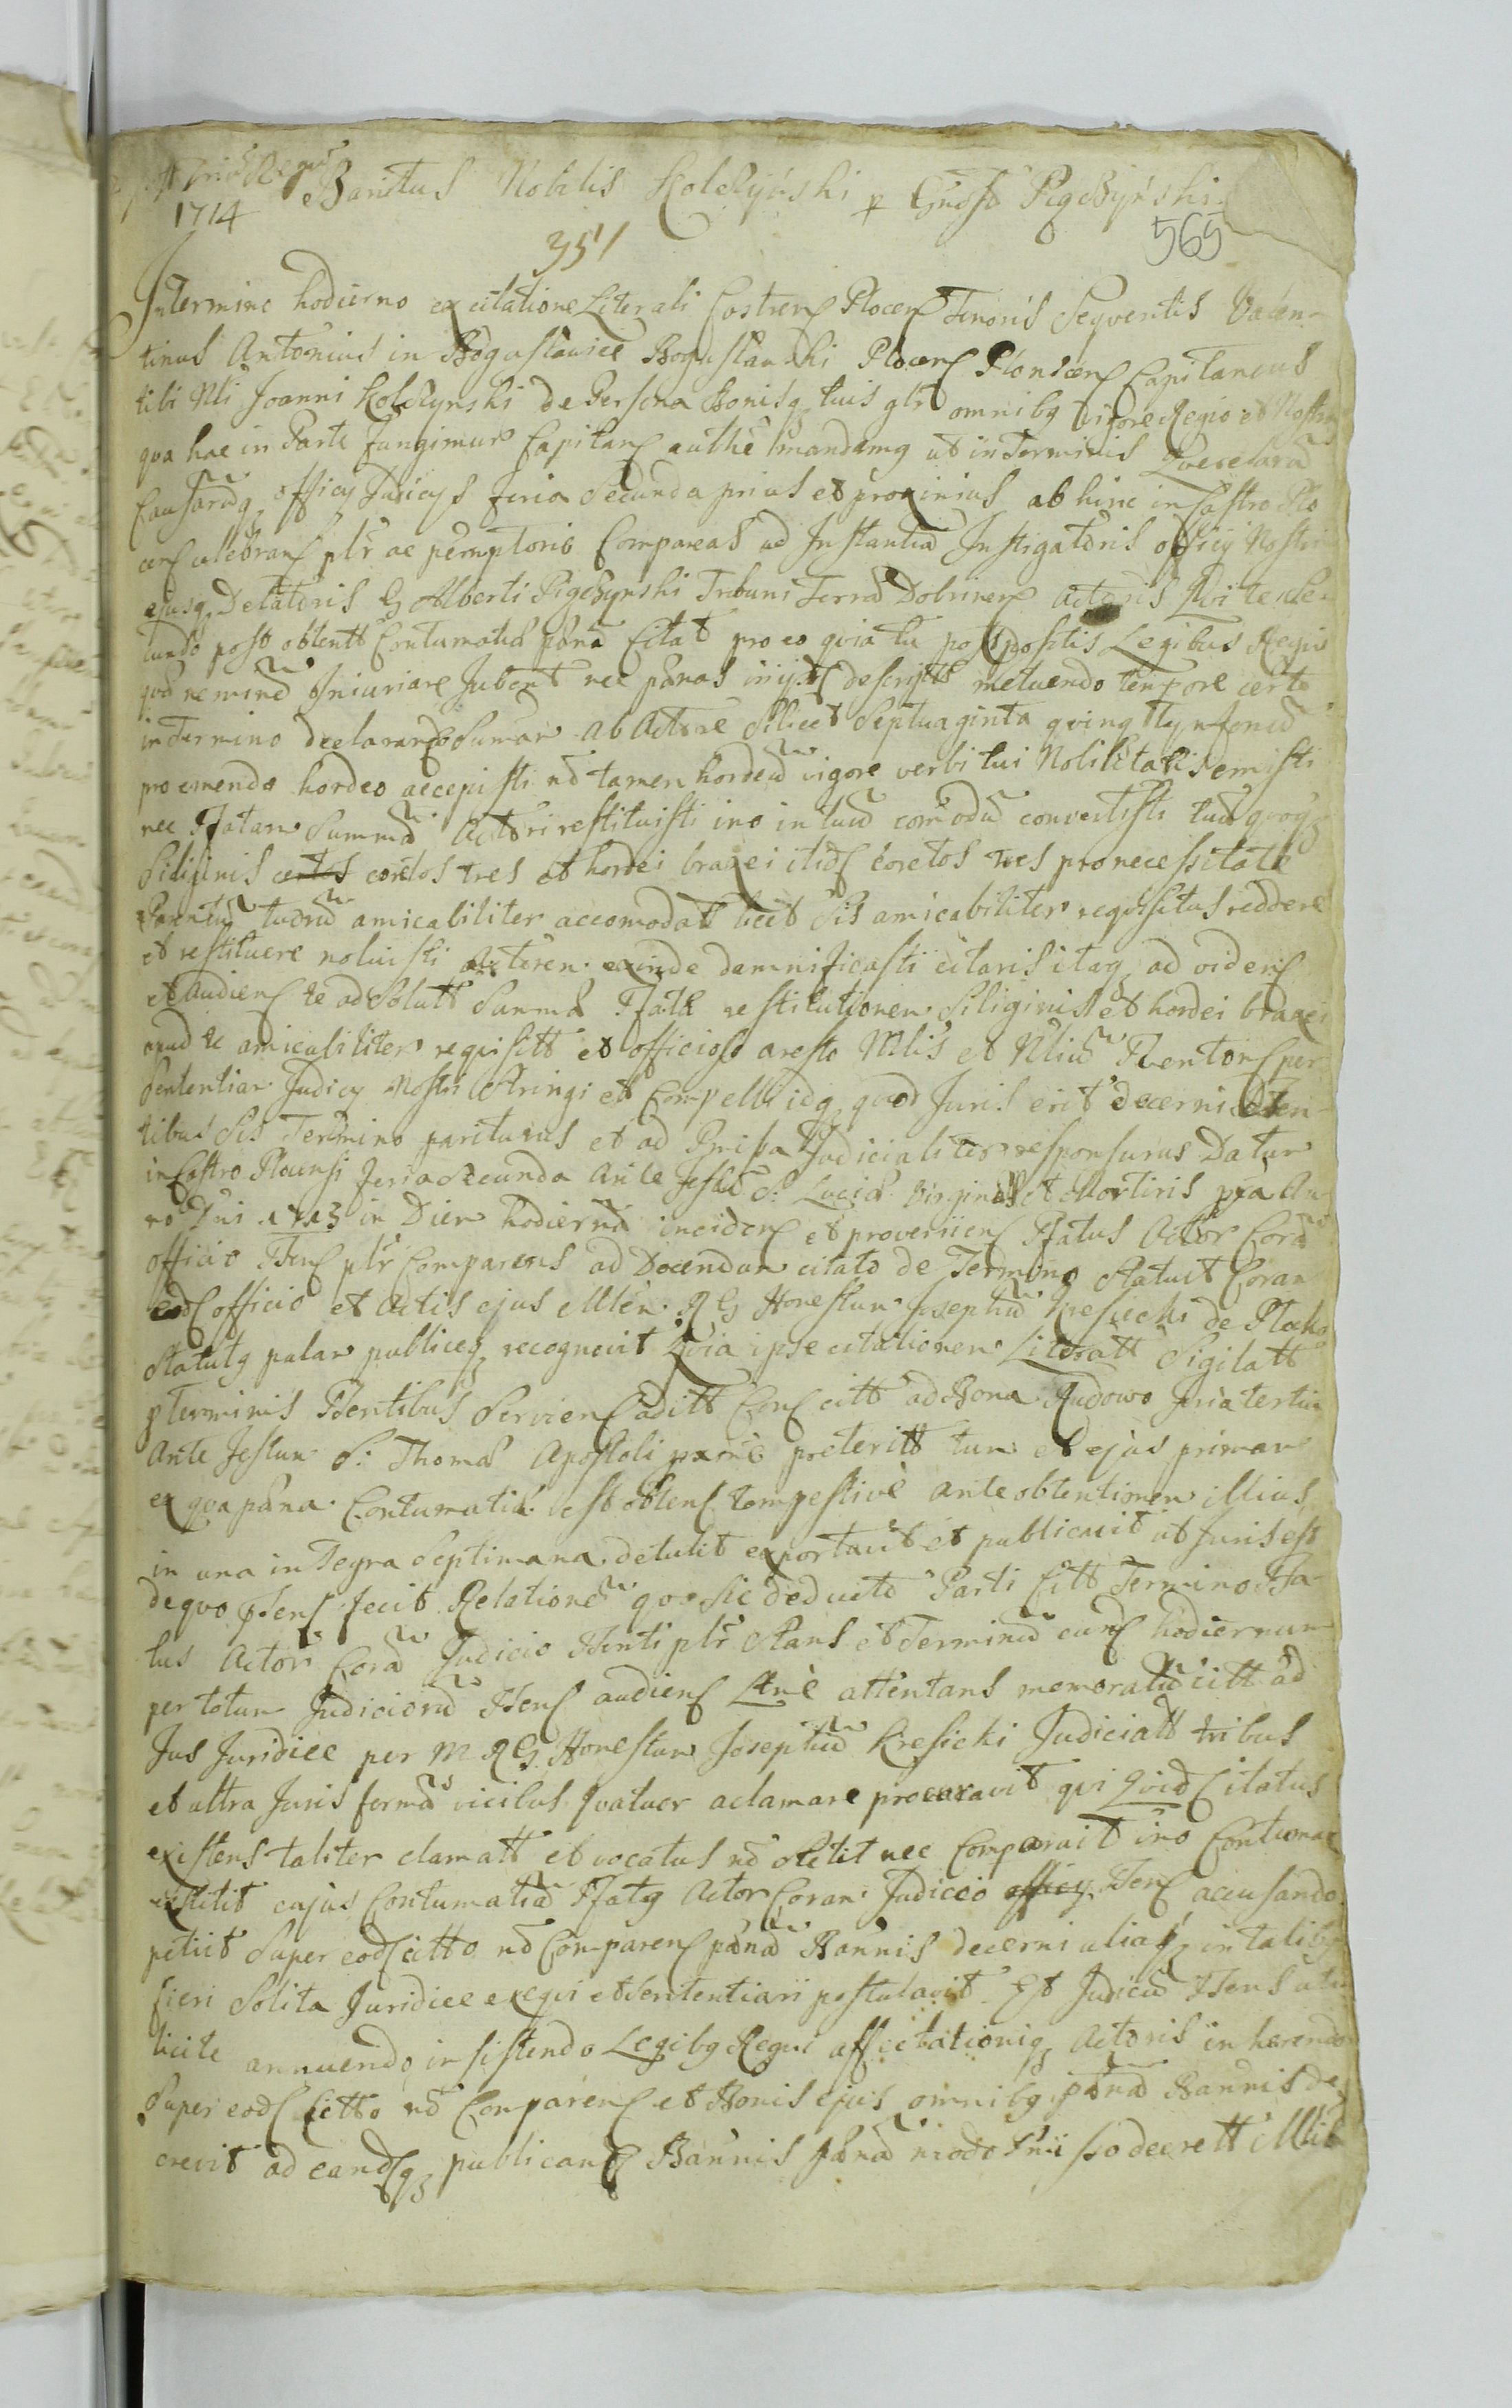 post Triū Regū
1714
Banitus Nobilis Kolczyński p Gnosū Pigczyński
351
565
In termino hodierno ex citatione Literali Castren Plocen Tenoris Seqventis Valen-
tinus Antonius in Bogusławice Bogusławski Plocen Plonscen Capitaneus
tibi Nli Joanni Kolczynski de Persona Bonisq tuis glr omnibq vigore Regio et Nostra
qva hac in Parte fungimur Capitan authe mandamq ut in Terminis Querelarū
Causarūq officy Judicys feria Secunda prius et proxinius ab hinc in Castro Plo
cen celebran plr ac peremptorie Compareas ad Instantiā Instigatoris officy Nostri
ejusq Delatoris G Alberti Pigczynski Tribuni Terrae Dobrinen Actoris Qvi te
tundo post obtentt Contumatiae paenā Citat pro eo qvia tu postpositis Legibus Regni
qvae neminē Iniuriare Jubent nec paenas in ijsd descriptt metuendo tempore certo
in Termino declarand Sumam ab Actore Scilicet Septuaginta qvinq Tynfonū
pro emendo hordeo accepisti nō tamen hordeū vigore verbi tui Nobilitaris emisti
nec Pfatam Summā Actori restituisti imo in tuū comodū convertisti tuū qvoq
Siliginis certos coretos tres et hordei braxei itid coretos tres pro necessitate
Parentū tuorū amicabiliter accomodatt licet Sis amicabiliter reqvisitus reddere
et restituere noluisti Actorem exinde damnificasti citaris itaq ad viden
et Audien te ad Solutt Summae Pfatae restitutionem Siliginis et hordei braxei
apud te amicabiliter reqvisitt et officioso aresto Nllis et Nliū Pventor per
Sententiam Judicy Nostri Stringi et Compelli idq quod Juris erit decerni
tibus Sis Termino pariturus et ad Pmissa Judicialiter responsurus Datum
in Castro Plocensi feria Secunda Ante festū S. Luciae Virginis et Martiris pxa An-
no Dni 1713 in Diem hodiernū inciden et provenien Pfatus Actor Corā
officio Psen plr Comparens ad Docendum citato de Termino Statuit Coram
eod officio et Actis ejus Mlem R G Honestum Josephū Kresicki de Plocko
Statutq palam publiceq recognovit Qvia ipse citationem Literatt Sigilatt
p Terminis Psentibus Servien aditt Con citt ad Bona Rudowo feria tertia
Ante festum S. Thomae Apostoli pxme praeteritt tum et ejus primam
ex qva paena Contumatiae est obten tempestive ante obtentionem illius
in una integra Septimana detulit exportavit et publicavit ut Juris est
de qvo psen fecit Relationē qvo sic deducto Parti Citt Termino Pfa-
tus Actor Corā Judicio Psenti plr Stans et Terminū eund hodiernum
per totum Judiciorū Psen audien attentans memoratū citt ad
Jus Juridice per M R G Honestum Josephū Kresicki Judicialt tribus
et ultra Juris formā vicibus Qvatuor aclamare procuravit qvi Qvid Citatus
existens taliter clamatt et vocatus nō Stetit nec Comparuit imo Contumax
extitit cujus Contumatiā Pfatq Actor Coram Judicio officy Psen accusando
petiit Super eod citto nō Comparen paenā Bannis decerni aliaq in talibq
fieri Solita Juridice exeqvi et Sententiari postulavit Et Judiciū Psens
licite annuendo insistendo Legibq Regni affectationiq Actoris inhaerendo
Super eod citto nō Comparen et Bonis ejus omnibq paenā Bannis de-
crevit ad eandq publicand Bannis paenā modo decrett Mle